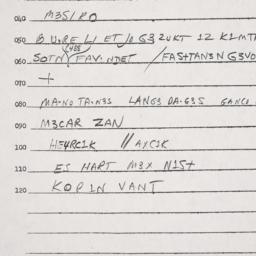 040 M3S1RO
050 B URE LI ET JO G3 2UKT 12 K1MTA
yes
060 SOTN FAV NDET / FAS+TAN3N G3VO
+
070
080 MA NO TA N3S LANG3 DA G3S GANCO
090 M3CAR ZAN
100 HE4RC1K // AXC1K
110 ES HART M3X N1S+
120 KOP IN VANT